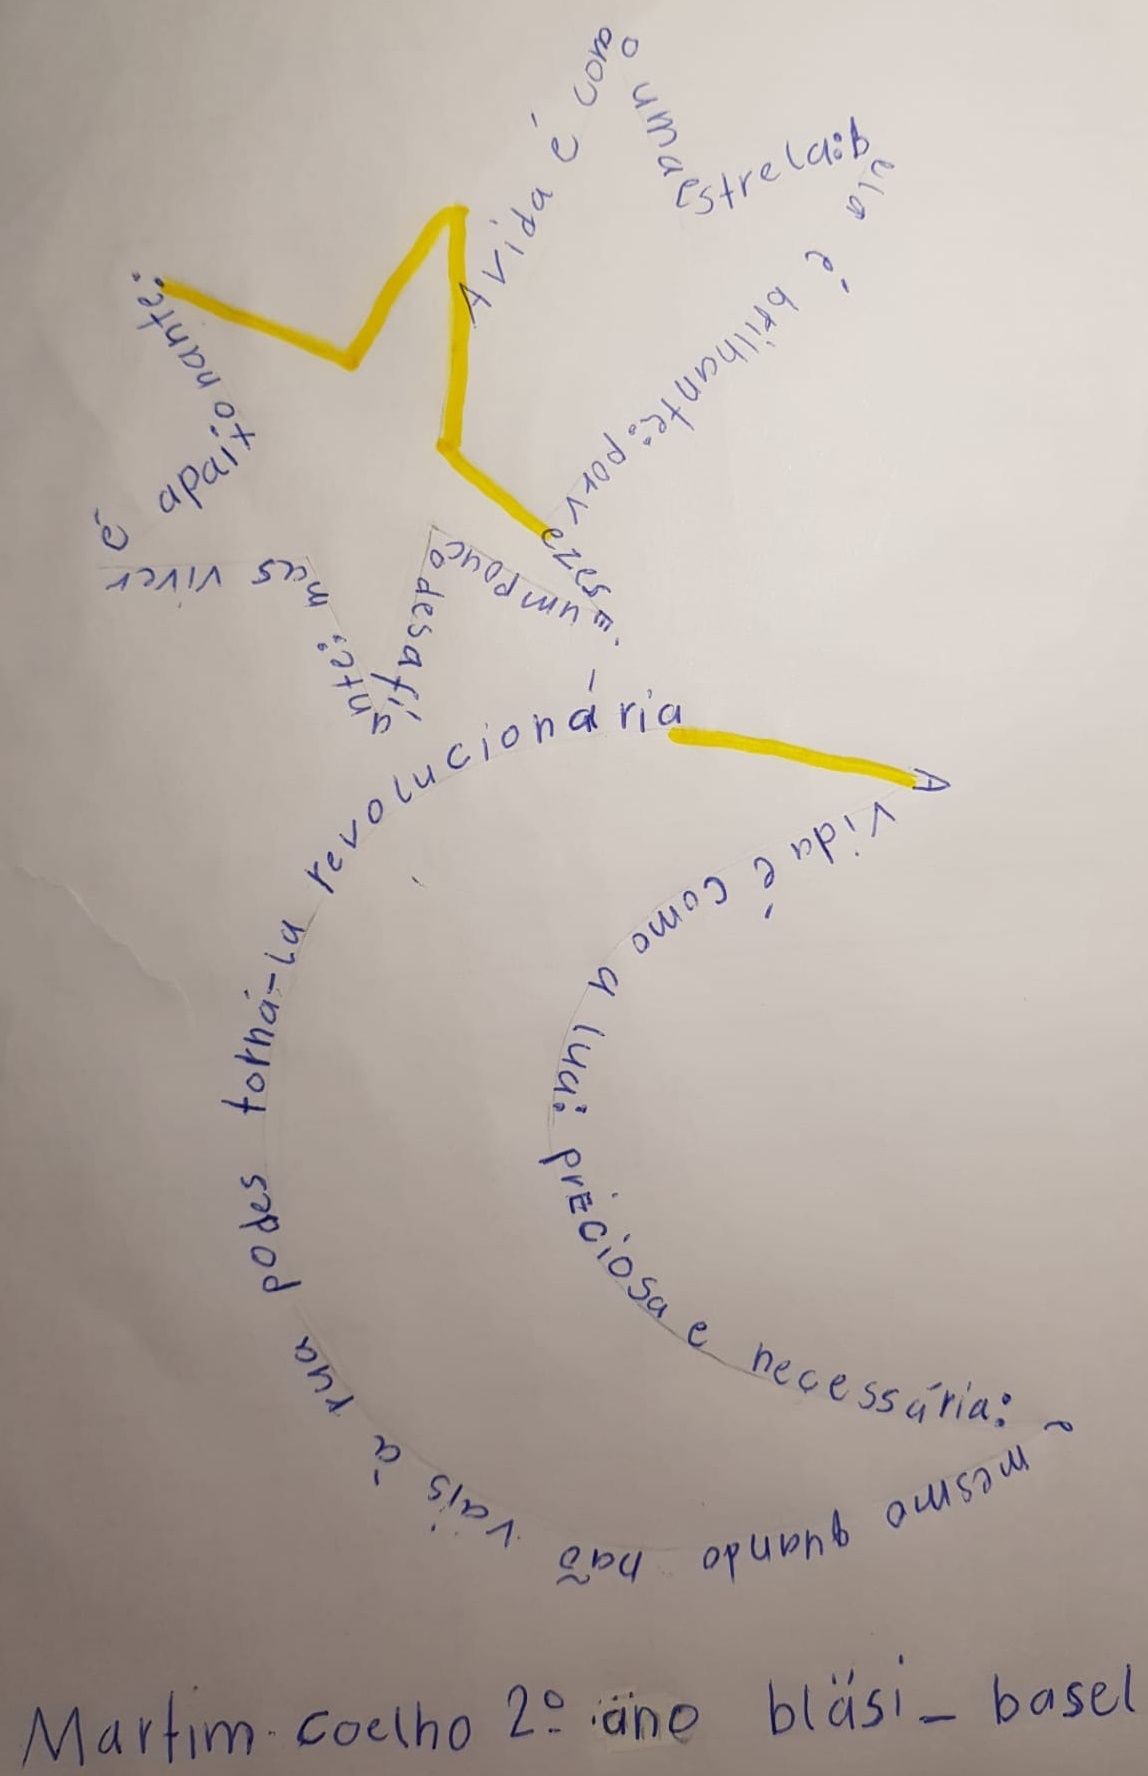 A vida é como uma estrela: bela é brilhante: por vezes É um pouco desafiante: mas viver é apaixonante:
A vida é como a lua: preciosa e necessária: e mesmo quando naõ vais à rua podes torná-la revolucionária
Martim coelho 2º ano bläsi - basel